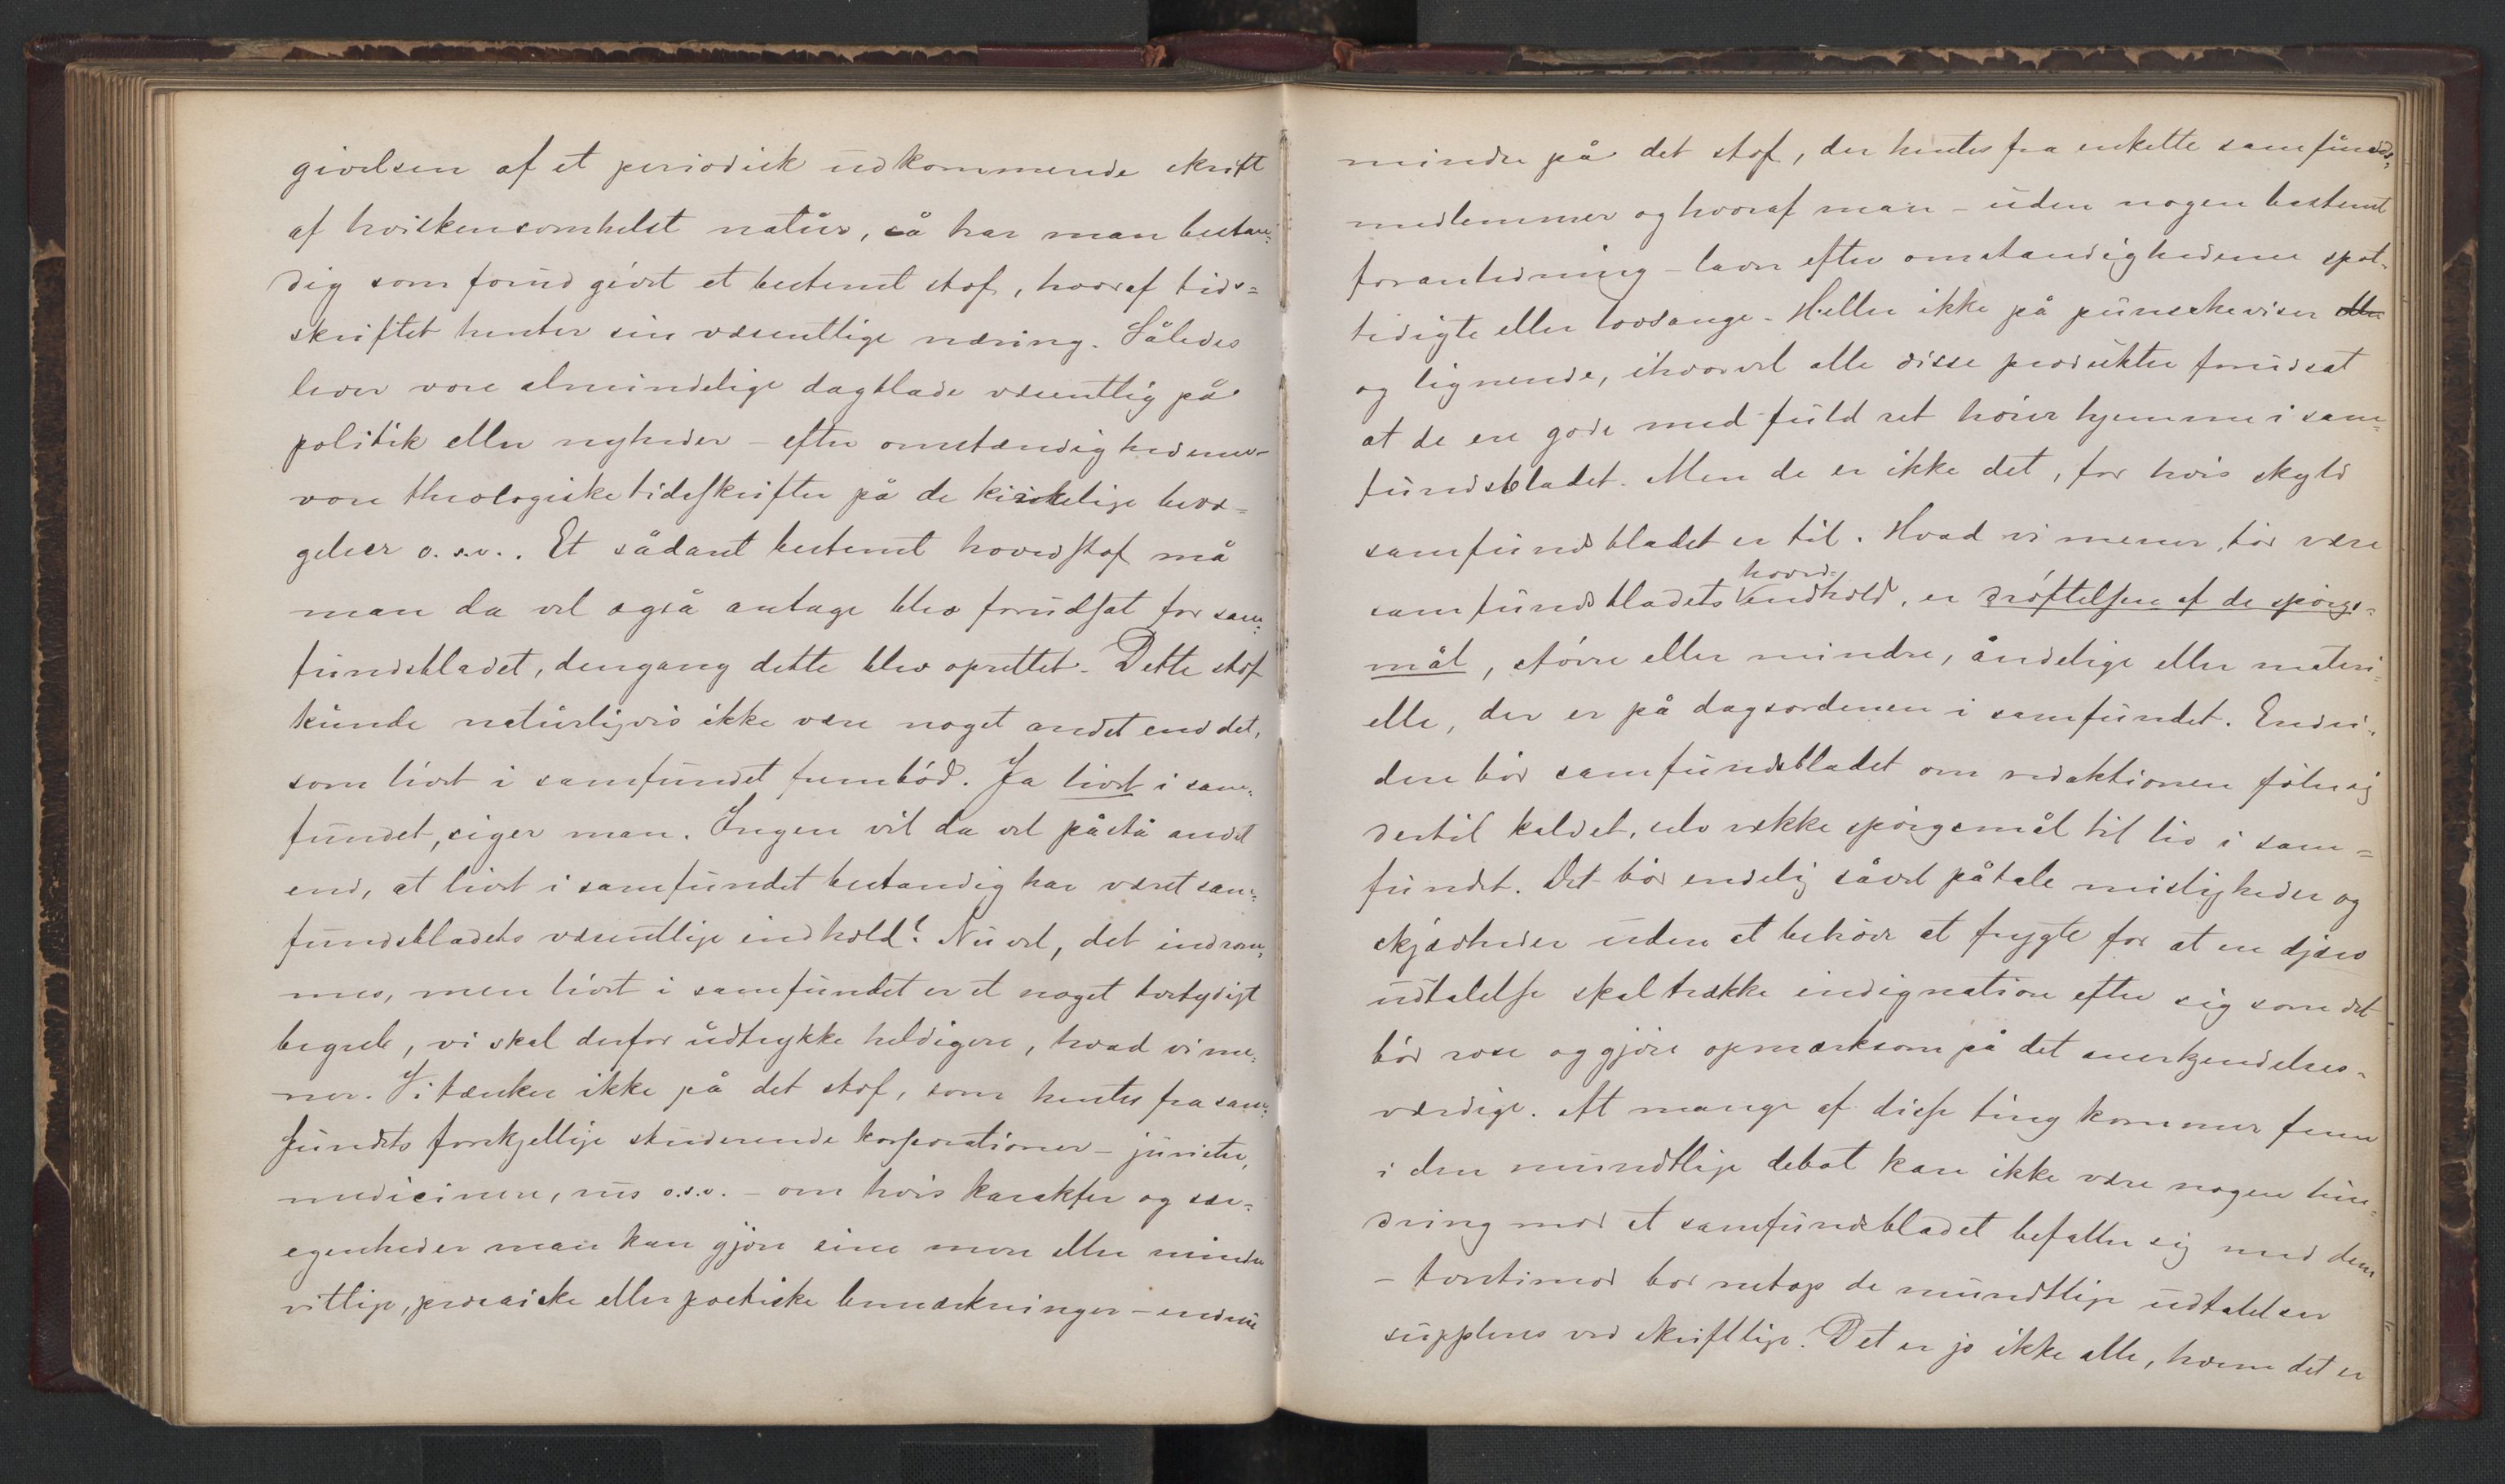 givelsen af et periodisk udkommende skrift
af hvilkensomhelst natur, så har man bestan=
dig som forud givet et bestemt stof, hvoraf tids=
skriftet henter sin væsentlige næring. Således
lever vore almindelige dagblade væsentlig på
politik eller nyheder – efter omstændighederne –
vore theologiske tidsskrifter på de kirkelige bevæ=
gelser o.s.v.. Et sådant bestemt hovedstof må
man da vel også antage blev forudsat for sam=
fundsbladet, dengang dette blev oprettet. Dette stof
kunde naturligvis ikke være noget andet end det,
som livet i samfundet frembød. Ja livet i sam=
fundet, siger man. Ingen vil da vel påstå andet
end, at livet i samfundet bestandig har været sam=
fundsbladets væsentlige indhold? Nu vel, det indrøm=
mes, men livet i samfundet er et noget tvetydigt
begreb, vi skal derfor udtrykke heldigere, hvad vi me=
ner. Vi tænker ikke på det stof, som hentes fra sam=
fundets forskjellige studerende korporationer – jurister,
medicinere, rus o.s.v. – om hvis karakter og sær=
egenheder man kan gjøre sine mere eller mindre
vittige, prosaiske eller poetiske bemærkninger – endnu
mindre på det stof, der hentes fra enkelte samfunds=
medlemmer og hvoraf man – uden nogen bestemt
foranledning – laver efter omstændighederne spot=
tedigte eller lovsange. Heller ikke på punscheviser eller
og lignende, ihvorvel alle disse produkter forudsat
at de ere gode med fuld ret hører hjemme i sam=
fundsbladet. Men de er ikke det, for hvis skyld
samfundsbladet er til. Hvad vi mener, bør være
samfundsbladets hoved-indhold, er drøftelsen af de spørgs=
mål, større eller mindre, åndelige eller materi=
elle, der er på dagsordenen i samfundet. Endvi=
dere bør samfundsbladet om redaktionen føler sig
dertil kaldet, selv vække spørgsmål til liv i sam=
fundet. Det bør endelig såvel påtale misligheder og
skjævheder uden at behøve at frygte for at en djærv
udtalelse skal trække indignation efter sig som det
bør rose og gjøre opmærksom på det anerkjendelses=
værdige. At mange af disse ting kommer frem
i den mundtlige debat kan ikke være nogen hin=
dring mod at samfundsbladet befatter sig med dem
– tvertimod bør netop de mundtlige udtalelser
suppleres ved skriftlige. Det er jo ikke alle, hvem det er